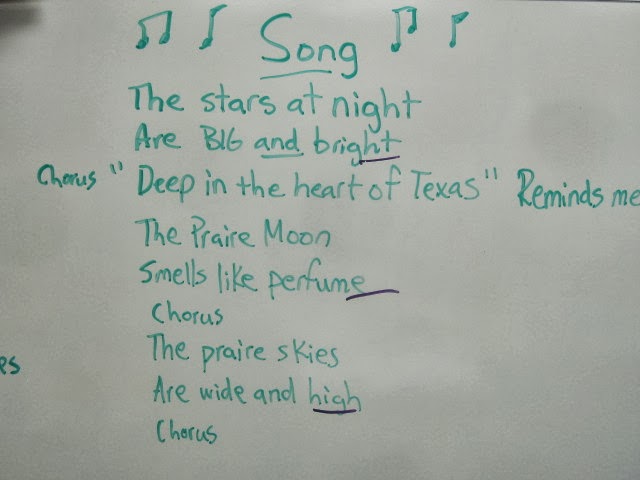 Song
The stars at night
Are BIG and bright
Chorus " Deep in the heart of Texas" Reminds me
The Praire Moon
Smells like perfume
Chorus
The praire skies
Are wide and high
Chorus